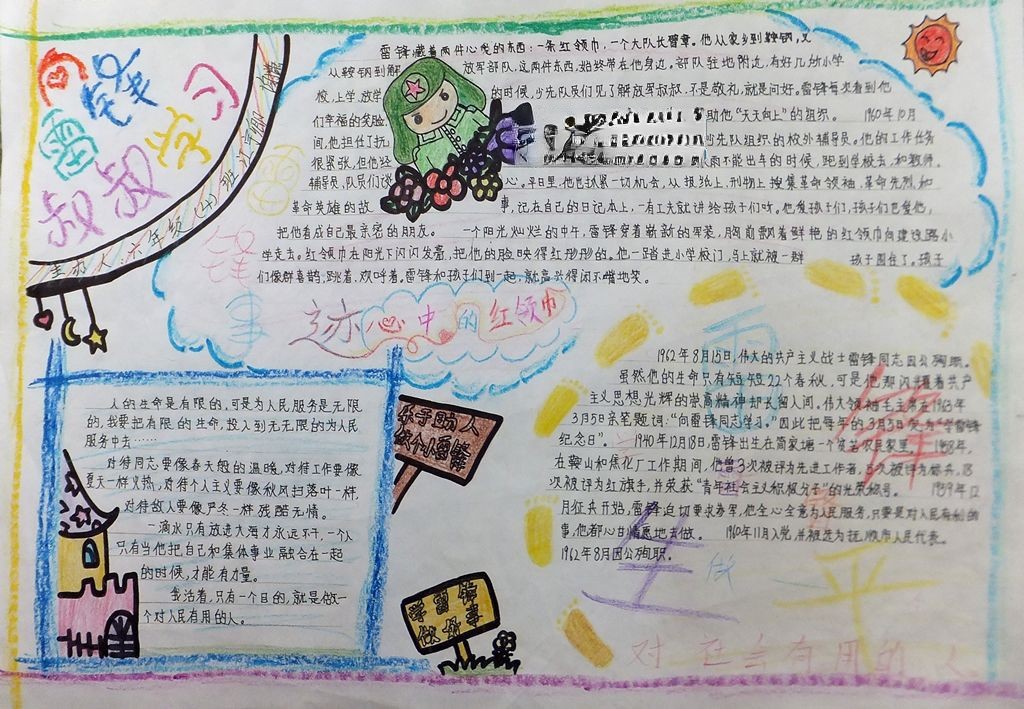 向雷锋
叔叔学习
雷锋藏着两件心爱的东西:一条红领巾,一个大队长臂章。他从家乡到鞍钢,又
从鞍钢到解放军部队,这两件东西,始终带在他身边。部队驻地附近,有好几所小学
校,上学,放学的时候,少先队员们见了解放军叔叔,不是敬礼,就是问好。雷锋每次看到他
们幸福的笑脸 助他“天天向上”的组织。 1960年10月
间,他担任了抚 少先队组织的校外辅导员。他的工作任务
很紧张,但他经 雨不能出车的时候,跑到学校去,和教师、
辅导员,队员们谈心。平日里,他也抓紧一切机会,从报纸上,刊物上搜集革命领袖,革命先烈和
革命英雄的故事,记在自己的日记本上,一有工夫就讲给孩子们听。他爱孩子们,孩子们也爱他,
把他看成自己最亲密的朋友。 一个阳光灿烂的中午,雷锋穿着崭新的军装,胸前飘着鲜艳的红领巾向建设路小
学走去。红领巾在阳光下闪闪发亮,把他的脸映得红彤彤的。他一踏进小学校门,马上就被一群孩子围住了。孩子
们像群喜鹊,跳着,欢呼着,雷锋和孩子们到一起,就高兴得闭不嘴地笑。
锋
事迹
心中的红领巾
人的生命是有限的,可是为人民服务是无限
的,我要把有限的生命,投入到无无限的为人民
服务中去……
对待同志要像春天般的温暖,对待工作要像
夏天一样火热,对待个人主义要像秋风扫落叶一样,
对待敌人要像严冬一样残酷无情。
一滴水只有放进大海才永远不干,一个人
只有当他把自己和集体事业融合在一起
的时候,才能有力量。
我活着,只有一个目的,就是做一
个对人民有用的人。
乐于助人
做个小雷锋
学雷锋
做好事
1962年8月15日,伟大的共产主义战士雷锋同志因公殉职。
虽然他的生命只有短短22个春秋,可是他那闪耀着共产
主义思想光辉的崇高精神却长留人间。伟大领袖毛主席在1963年
3月5日亲笔题词:“向雷锋同志学习。”因此把每年的3月5日定为“学雷锋
纪念日”。 1940年12月18日,雷锋出生在简家塘一个贫苦农民家里。 1958年,
在鞍山和焦化厂工作期间,他曾3次被评为先进工作者,5次被评为标兵,18
次被评为红旗手,并荣获“青年社会主义积极分子”的光荣称号。 1959年12
月征兵开始,雷锋迫切要求参军,他全心全意为人民服务,只要是对人民有利的
事,他都心甘情愿地去做。 1960年11月入党,并被选为抚顺市人民代表。
1962年8月因公殉职。
雷锋
生平
做
对社会有用的人